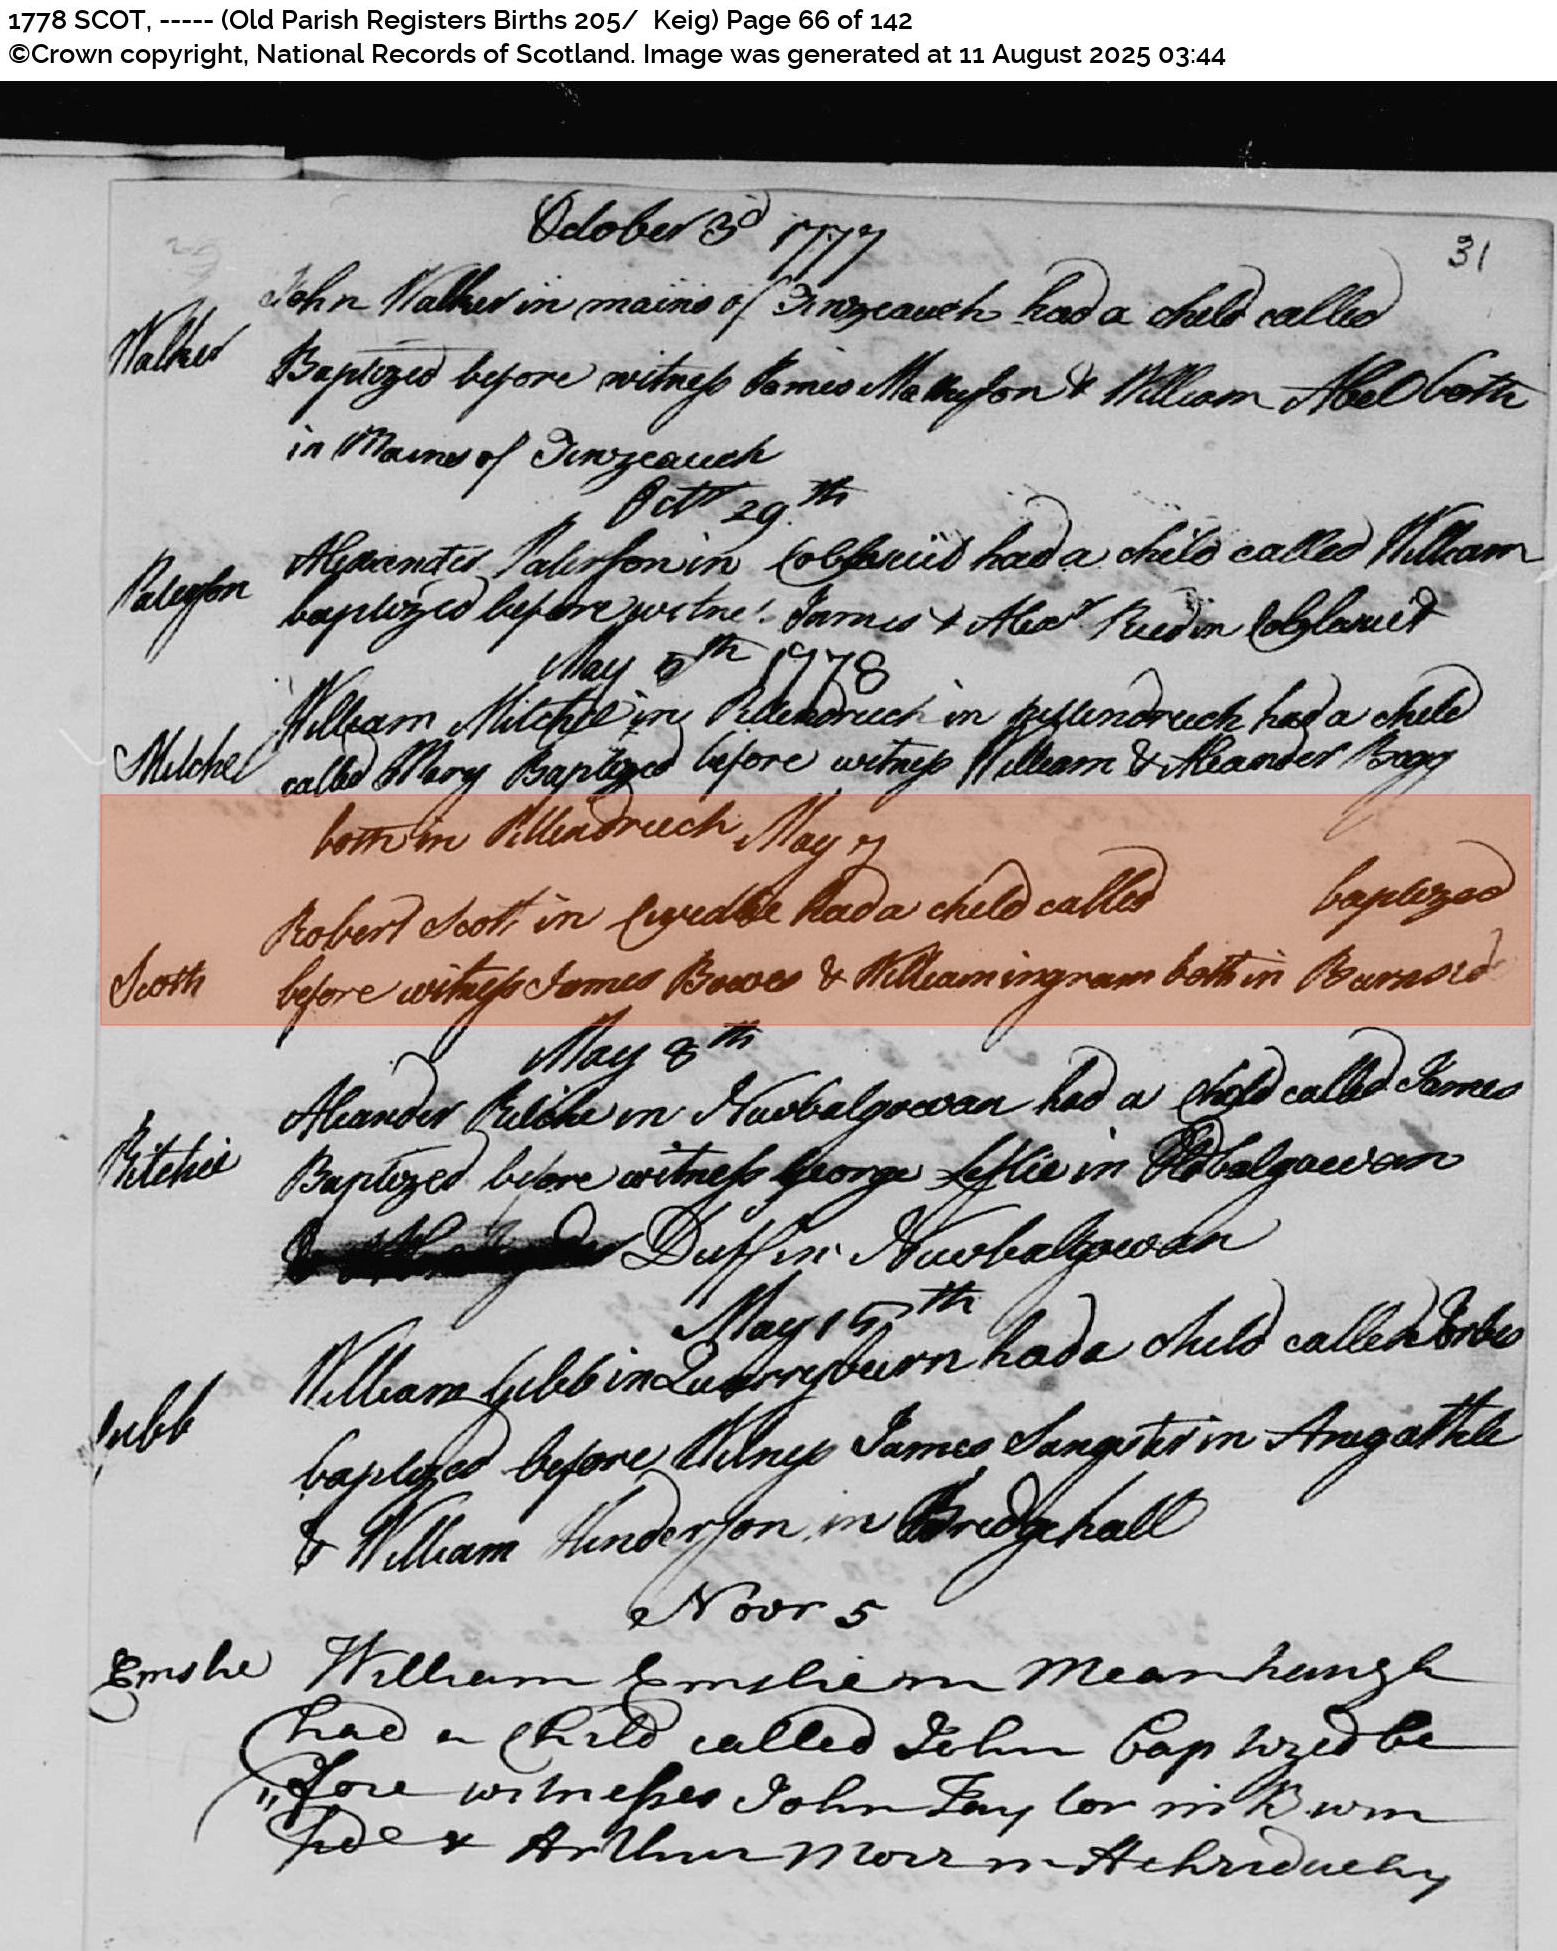 1778 SCOT, ----- (Old Parish Registers Births 205/ Keig) Page 66 of 142
©Crown copyright, National Records of Scotland. Image was generated at 11 August 2025 03:44
October 3d 1777
31
John Walker in mains of had a child called
Walker
Baptized before witness James Mathyson & William Abel both
in Mains of
Octr 29th
Alexander Paterson in had a child called William
Paterson
baptized before witne: James & Alexr Reed in
May 5th 1778
William Mitchel in Pittendriech in pittendriech had a child
Mitchel
called Mary Baptized before witness William & Aleander Begg
both in Pittendriech May 7
Robert Scott in had a child called baptized
Scott
before witness James Bowes & William ingram both in Burnsid
May 8th
Aleander Ritchie in Newbalgowan had a child called James
Ritchie
Baptized before witness George Leslie in Oldbalgaewan
Duff in Newbalgowan
May 15th
William Gibb in Quarryburn had a child called Forbes
Gibb
baptized before Witness James Sangster in
& William Hinderson in Bridgehall
Novr 5
Emslie William Emslie in Mearhaugh
had a child called John baptized be
"fore witnesses John Taylor in
& Arthur Moir in